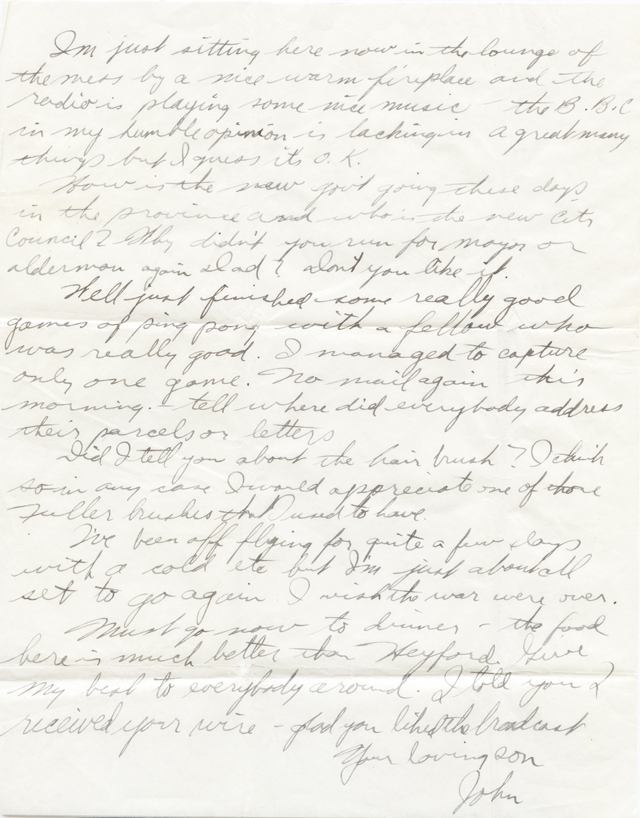 I'm just sitting here now in the lounge of
the mess by a nice warm fireplace and the
radio is playing some nice music - the B.B.C
in my humble opinion is lacking in a great many
things but I guess its O.K.
How is the new gov't going these days
in the province and who is the new City
Council? Why didn't you run for mayor or
alderman again Dad? don't you like it.
Well just finished some really good
games of ping pong with a fellow who
was really good. I managed to capture
only one game. No mail again this
morning. - tell where did everybody address
their parcels or letters
Did I tell you about the hair brush? I think
so in any case I would appreciate one of those
Fuller brushes that I used to have.
I've been off flying for quite a few days
with a cold etc but I'm just about all
set to go again I wish the war were over.
Must go now to dinner - the food
here is much better than Heyford. Give
my best to everybody around. I told you I
received your wire - glad you liked the broadcast
Your loving son
John